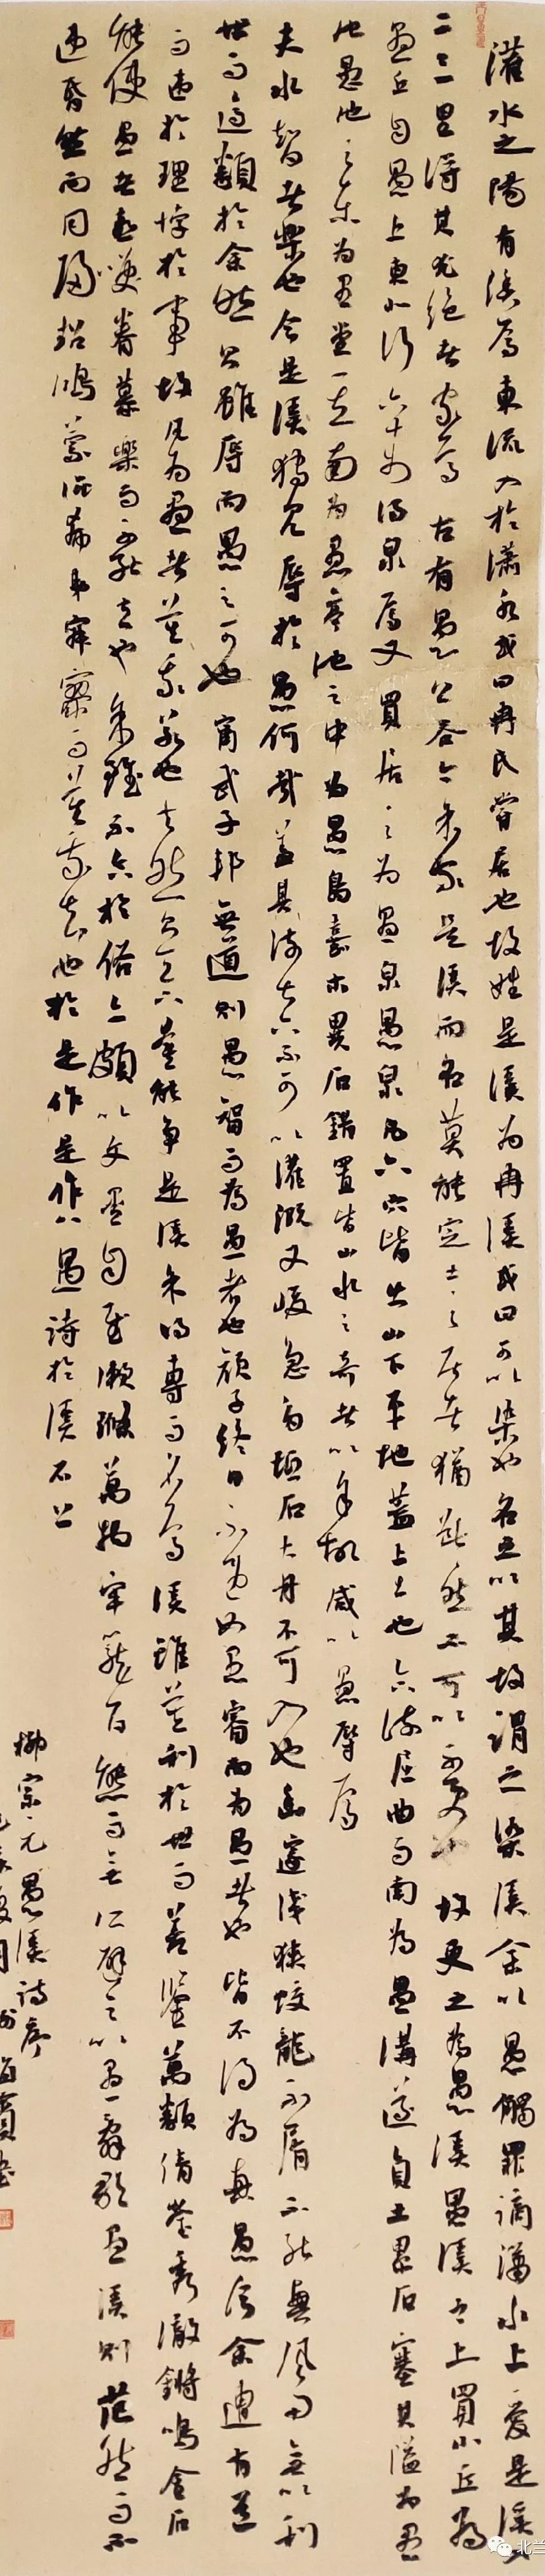 灌水之陽有溪焉東流入於瀟水或曰冉氏嘗居也故姓是溪為冉溪或曰可以染也名之以其故謂之染溪余以愚觸罪謫瀟水上愛是溪入
二三里得其尤絕者家焉古有愚公谷今余家是溪而名莫能定土之居者猶齗然不可以不更也故更之為愚溪愚溪之上買小丘為
愚丘自愚上東北行六十步得泉焉又買居之為愚泉愚泉凡六穴皆出山下平地蓋上出也合流屈曲而南為愚溝遂負土累石塞其隘為愚
池愚池之東為愚堂其南為愚亭池之中為愚島嘉木異石錯置皆山水之奇者以余故咸以愚辱焉
夫水智者樂也今是溪獨見辱於愚何哉蓋其流甚下不可以灌溉又峻急多坻石大舟不可入也幽邃淺狹蛟龍不屑不能興風雨無以利
世而適類於余然則雖辱而愚之可也甯武子邦無道則愚智而為愚者也顏子終日不違如愚睿而為愚者也皆不得為真愚今余遭有道
而違於理悖於事故凡為愚者莫我若也夫然則天下莫能爭是溪余得專而名焉溪雖莫利於世而善鑒萬類清瑩秀澈鏘鳴金石
能使愚者喜笑眷慕樂而不能去也余雖不合於俗亦頗以文墨自慰漱滌萬物牢籠百態而無所避之以愚辭歌愚溪則茫然而不
違昏然而同歸超鴻蒙混希夷寂寥而莫我知也於是作是作八愚詩於溪石上
柳宗元愚溪詩序
北兰